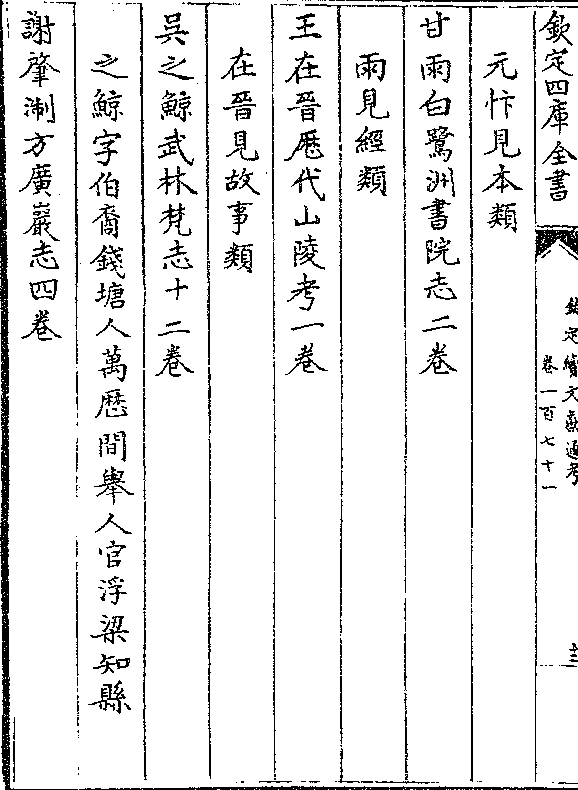 欽定四庫全書
欽定續文獻通考
卷一百七十一
三
元忭見本類
甘雨白鷺洲書院志二卷
雨見經類
王在晉歷代山陵考一卷
在晉見故事類
吳之鯨武林梵志十二卷
之鯨字伯裔錢塘人萬歷間舉人官浮梁知縣
謝肇淛方廣巖志四卷